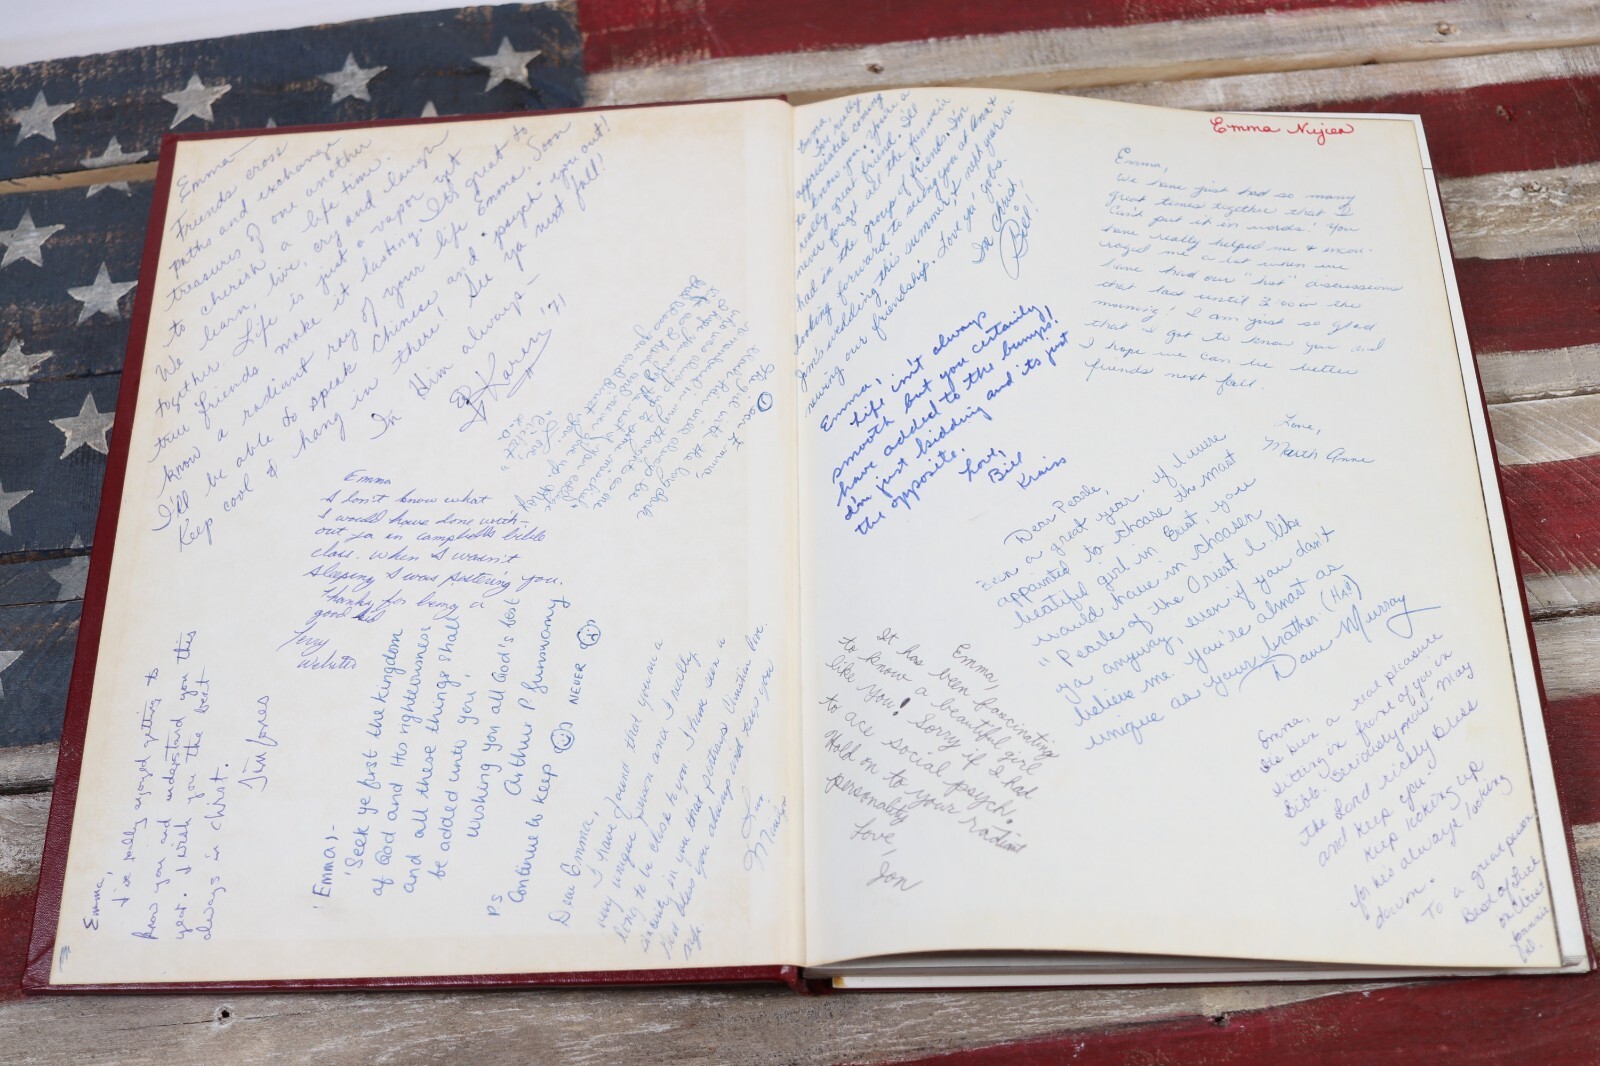 Emma—
Friends cross
paths and exchange
treasures of one another
to cherish a life time.
We learn, live, cry and laugh
together. Life is just a vapor yet
true friends make it lasting. It's great to
know a radiant ray of your life Emma. Soon
I'll be able to speak Chinese and "psych" you out!
Keep cool & hang in there! See ya next fall!
In Him always—
Karen '71
Emma
I don't know what
I would have done with-
out ya in campbells bible
class. When I wasn't
sleeping I was pestering you.
Thanks for being a
good kid
Terry
Webster
Emma,
I've really enjoyed getting to
know you and understand you this
year. I wish you the best
always in Christ.
Jim Jones
'Emma;-
'Seek ye first the kingdom
of God and His righteousness
and all these things shall
be added unto you'
wishing you all God's best
Arthur P Gunswamy
P.S Continue to keep NEVER
Dear Emma,
I have found that you are a
very unique person and I really
long to be close to you. I have seen a
sincerity in you that portrays Christian love.
May God bless you always and keep you
safe.
Emma,
I've really
appreciated coming
to know you. You're a
really great friend. I'll
never forget all the fun we've
had in the group of friends. I'm
looking forward to seeing you at Ann &
Jim's wedding this summer, & right now re-
newing our friendship. Love ya' gobs.
In Christ,
Bel!
Emma,
Life isn't always
smooth but you certainly
have added to the bumps!
I'm just kidding and its just
the opposite.
Love,
Bill
Kriss
Emma,
It has been fascinating
to know a beautiful girl
like you! Sorry if I had
to ace social psych.
Hold on to your radiant
personality
Love,
Jon
Emma Nujien
Emma,
We have just had so many
great times together that I
can't put it in words! You
have really helped me & encou-
raged me a lot when we
have had our "hot" discussions
that last until 2:00 in the
morning! I am just so glad
that I got to know you and
I hope we can be better
friends next fall.
Love,
Marth Anne
Dear Pearle,
Been a great year. if I were
appointed to choose the most
beatiful girl in East, you
would have in choosen
"Pearle of the Orient I like
ya anyway, even if you don't
believe me. You're almost as
unique as your brother. (Ha!)
Dave Murray
Emma,
It's been a real pleasure
sitting in front of you in
Bible. Seriously now—May
the Lord richly bless
and keep you.
Keep looking up
for he's always looking
down.
To a great person
Best of luck
in Christ